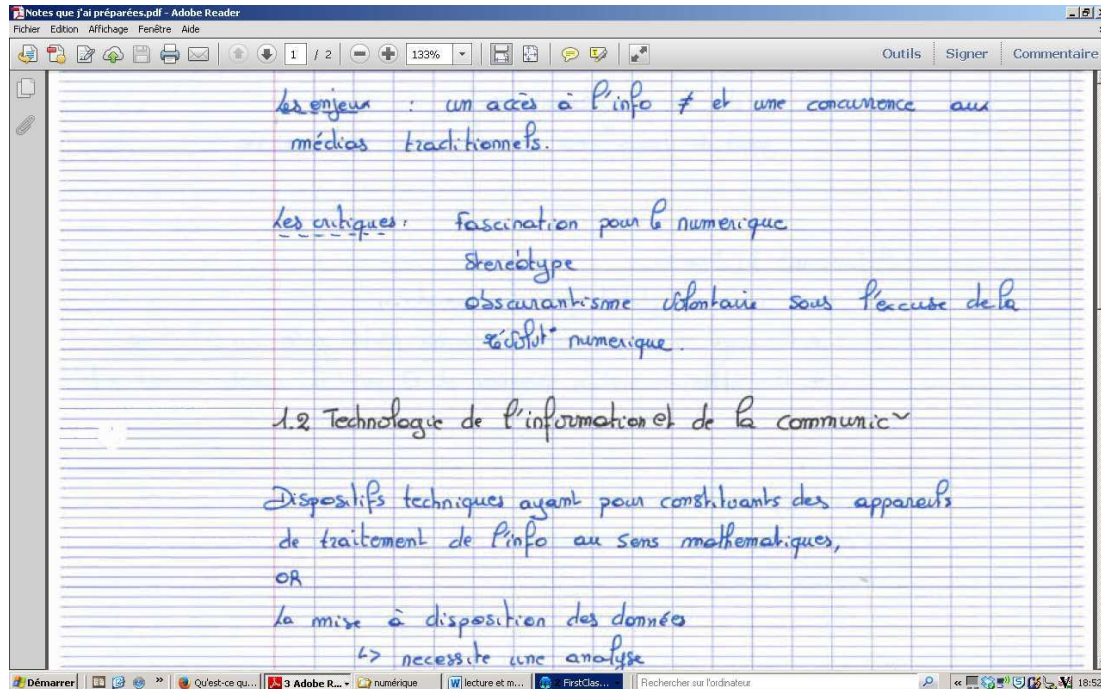 Notes que j'ai préparées.pdf - Adobe Reader
Fichier Edition Affichage Fenêtre Aide
1 / 2 133% Outils Signer Commentaire
Les enjeux : un accès à l'info ≠ et une concurrence aux
médias traditionnels.
Les critiques : fascination pour le numerique
Stereótype
obscurantisme volontaire sous l'excuse de la
révolut° numerique.
1.2 Technologie de l'information et de la communic~
Dispositifs techniques ayant pour constituants des appareils
de traitement de l'info au sens mathematiques,
OR
La mise à disposition des données
↳ necessite une analyse
Démarrer » Qu'est-ce qu... 3 Adobe R... numérique lecture et m... FirstClas... Rechercher sur l'ordinateur « 18:52